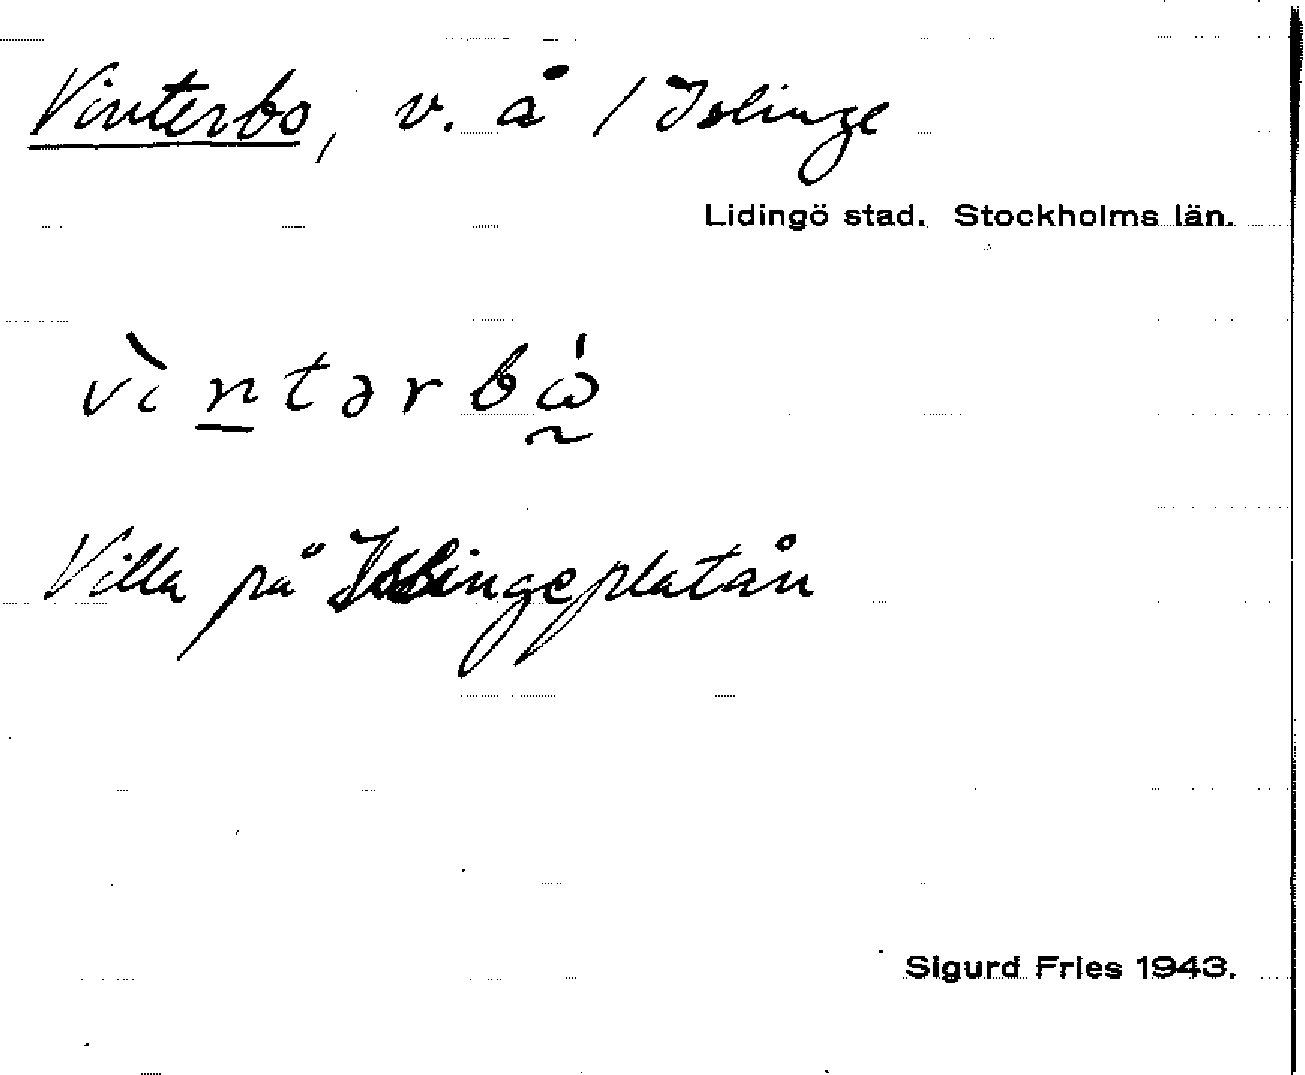 Vinterbo, v. å / Islinge
Lidingö stad. Stockholms län.
vìntərbώ̰
Villa på Islingeplatån
Sigurd Fries 1943.